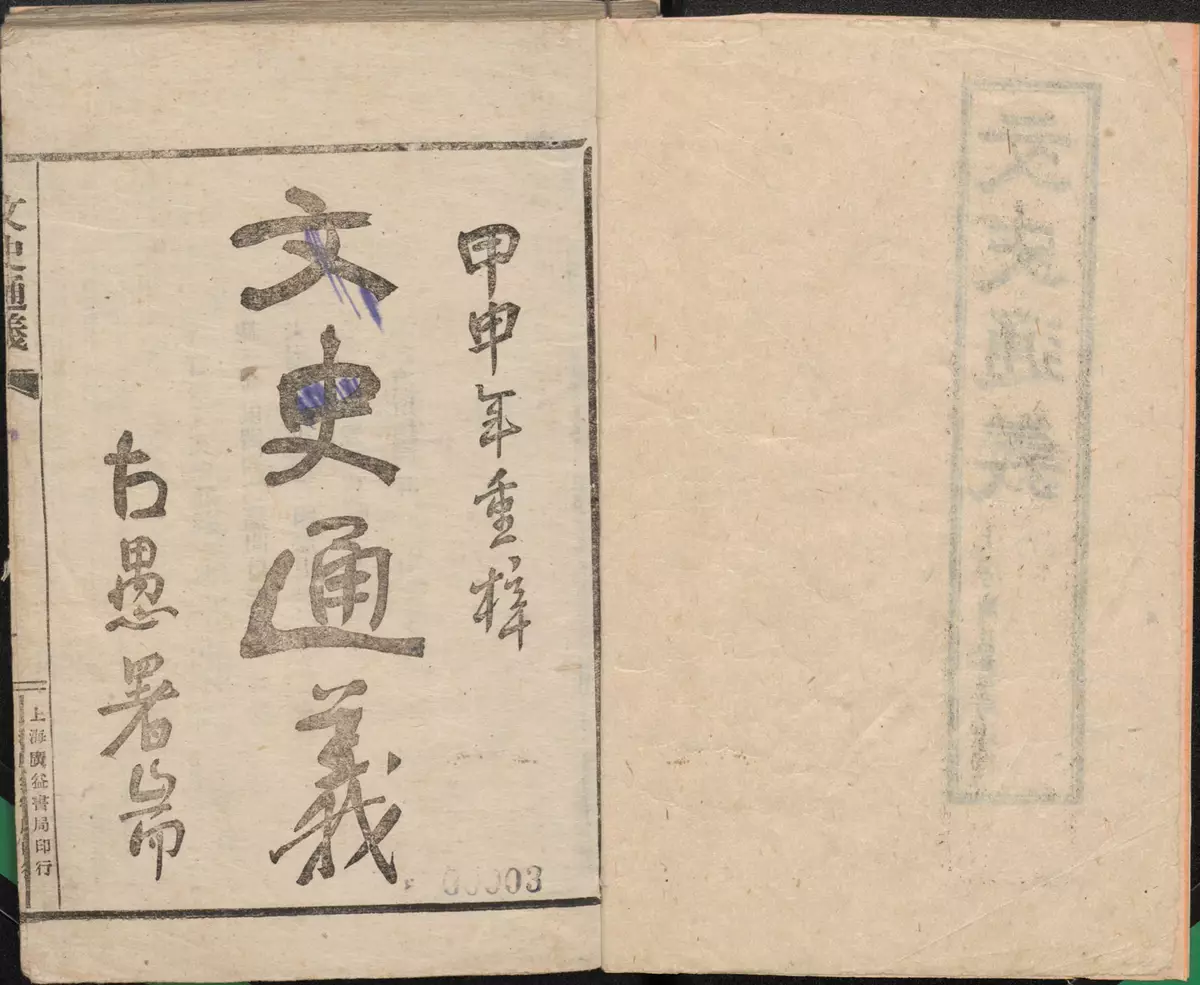 文史通義
甲申年重梓
文史通義
古愚署耑
00003
文史通義
上海廣益書局印行